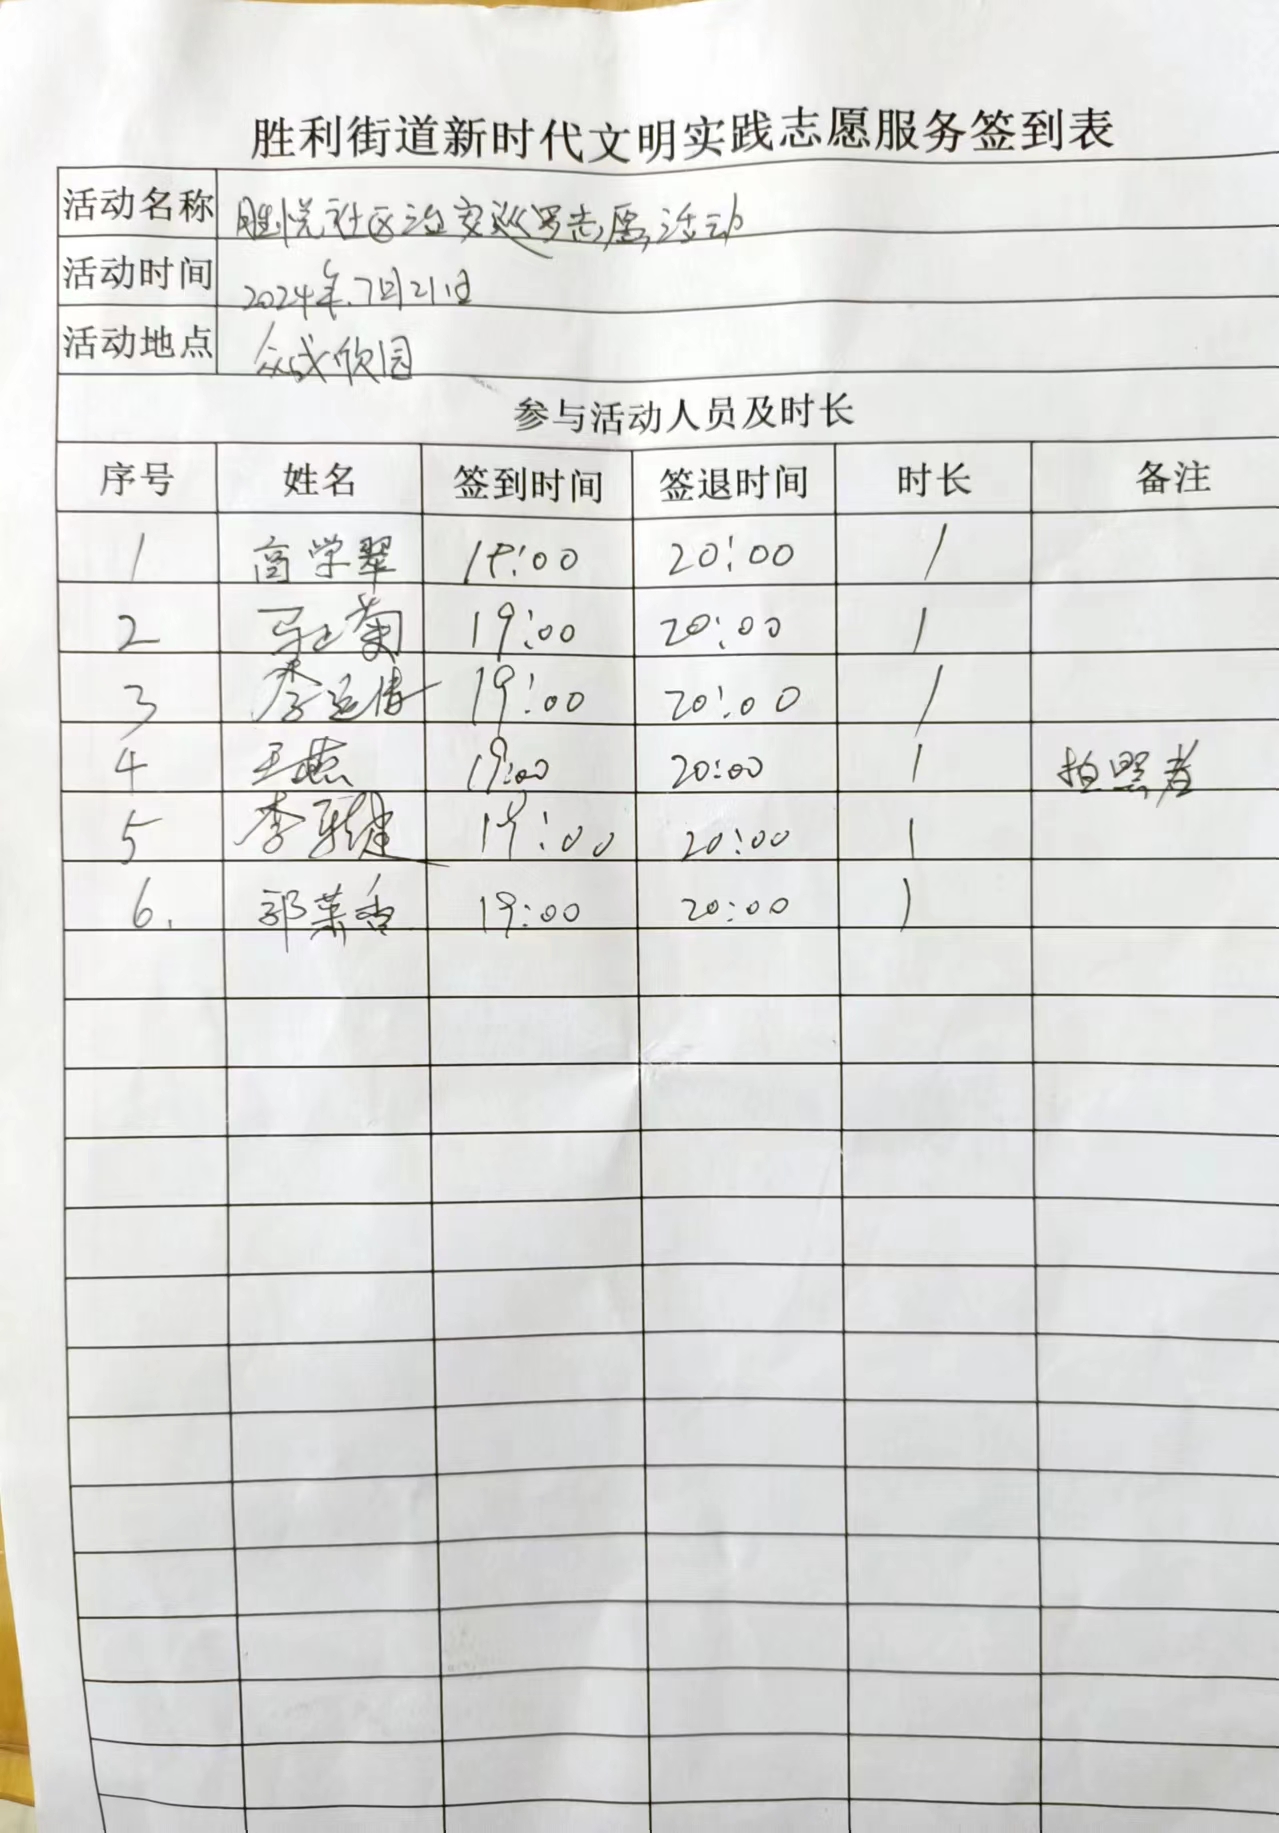 胜利街道新时代文明实践志愿服务签到表
活动名称 胜悦社区治安巡罗志愿活动
活动时间 2024年7月21日
活动地点 众成欣园
参与活动人员及时长
序号 姓名 签到时间 签退时间 时长 备注
1 高学翠 19:00 20:00 1
2 马玉菊 19:00 20:00 1
3 李 19:00 20:00 1
4 王燕 19:00 20:00 1 拍照者
5 李 19:00 20:00 1
6. 郭荣香 19:00 20:00 1